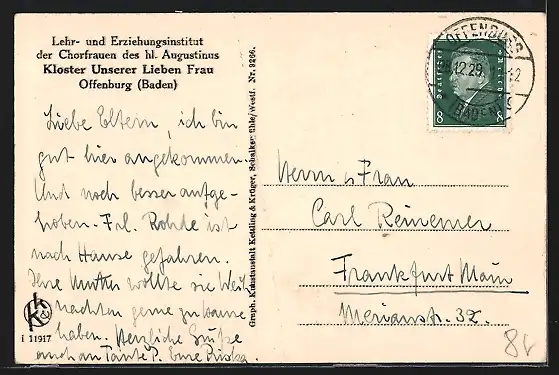 Lehr- und Erziehungsinstitut
der Chorfrauen des hl. Augustinus
Kloster Unserer Lieben Frau
Offenburg (Baden)
Liebe Eltern, ich bin
gut hier angekommen.
Und noch besser aufge-
hoben. Frl. Rohde ist
nach Hause gefahren.
Ihre Mutter wollte sie Weih
nachten gerne zu Hause
haben. Herzliche Grüße
auch an Tante P. Eure Priska.
i 11917
Graph. Kunstanstalt Kettling & Krüger, Schalksmühle/Westf. Nr. 9206.
OFFENBURG
12.29.
(BADEN)
Deutsches Reich
8 8
Herrn u Frau
Carl Reinemer
Frankfurt Main
Merianstr. 32.